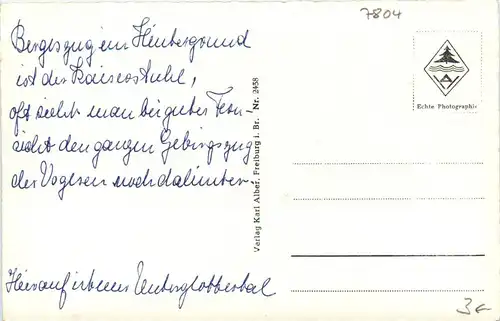 7804
Bergeszug im Hintergrund
ist der Kaiserstuhl,
oft sieht man bei guter Fern-
sicht den ganzen Gebirgszug
der Vogesen noch dahinter.
Hierauf ist unser Unterglottertal
Echte Photographie
Verlag Karl Alber, Freiburg i. Br. Nr. 2458
3€